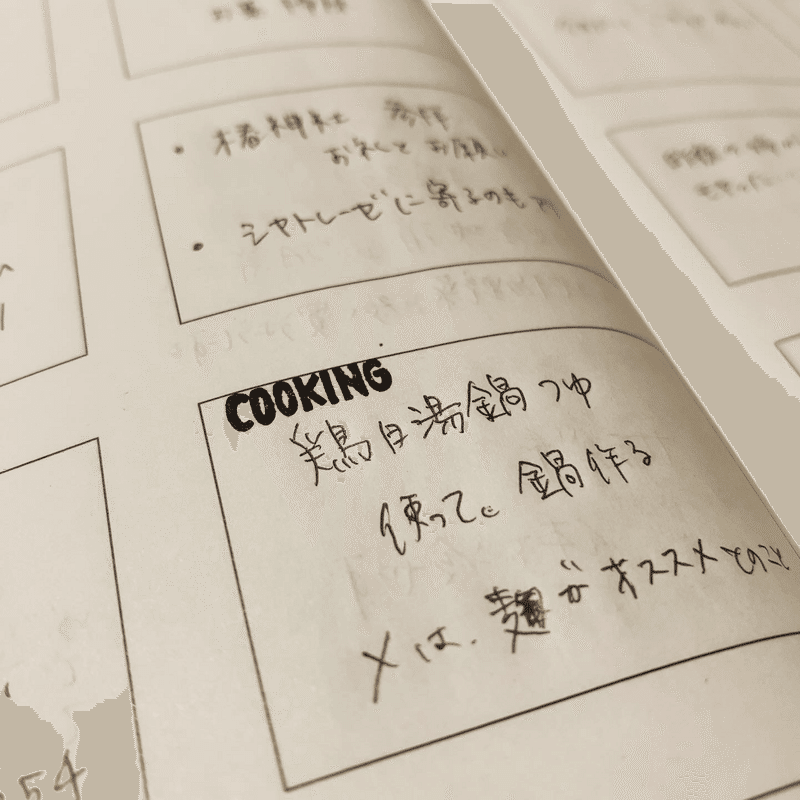 ・椿神社 参拝
お礼と お願い
・シャトレーゼに寄るのも
COOKING
鶏白湯鍋つゆ
使って。鍋作る
〆は、麺がオススメとのこと
54